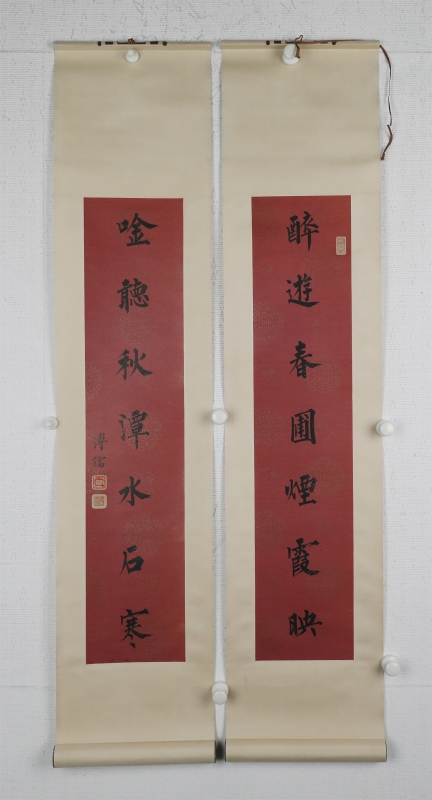 醉遊春圃煙霞映
唫聽秋潭水石寒
溥儒